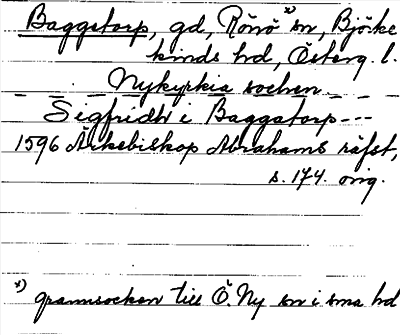 Baggetorp, gd, Rönö *) sn, Björke
kinds hd, Österg. l.
Nykyrkia sochen
Sigfridh i Baggatorp ---
1596 Ärkebiskop Abrahams räfst,
s. 174. orig.
*) grannsocken till Ö. Ny sn i sma hd